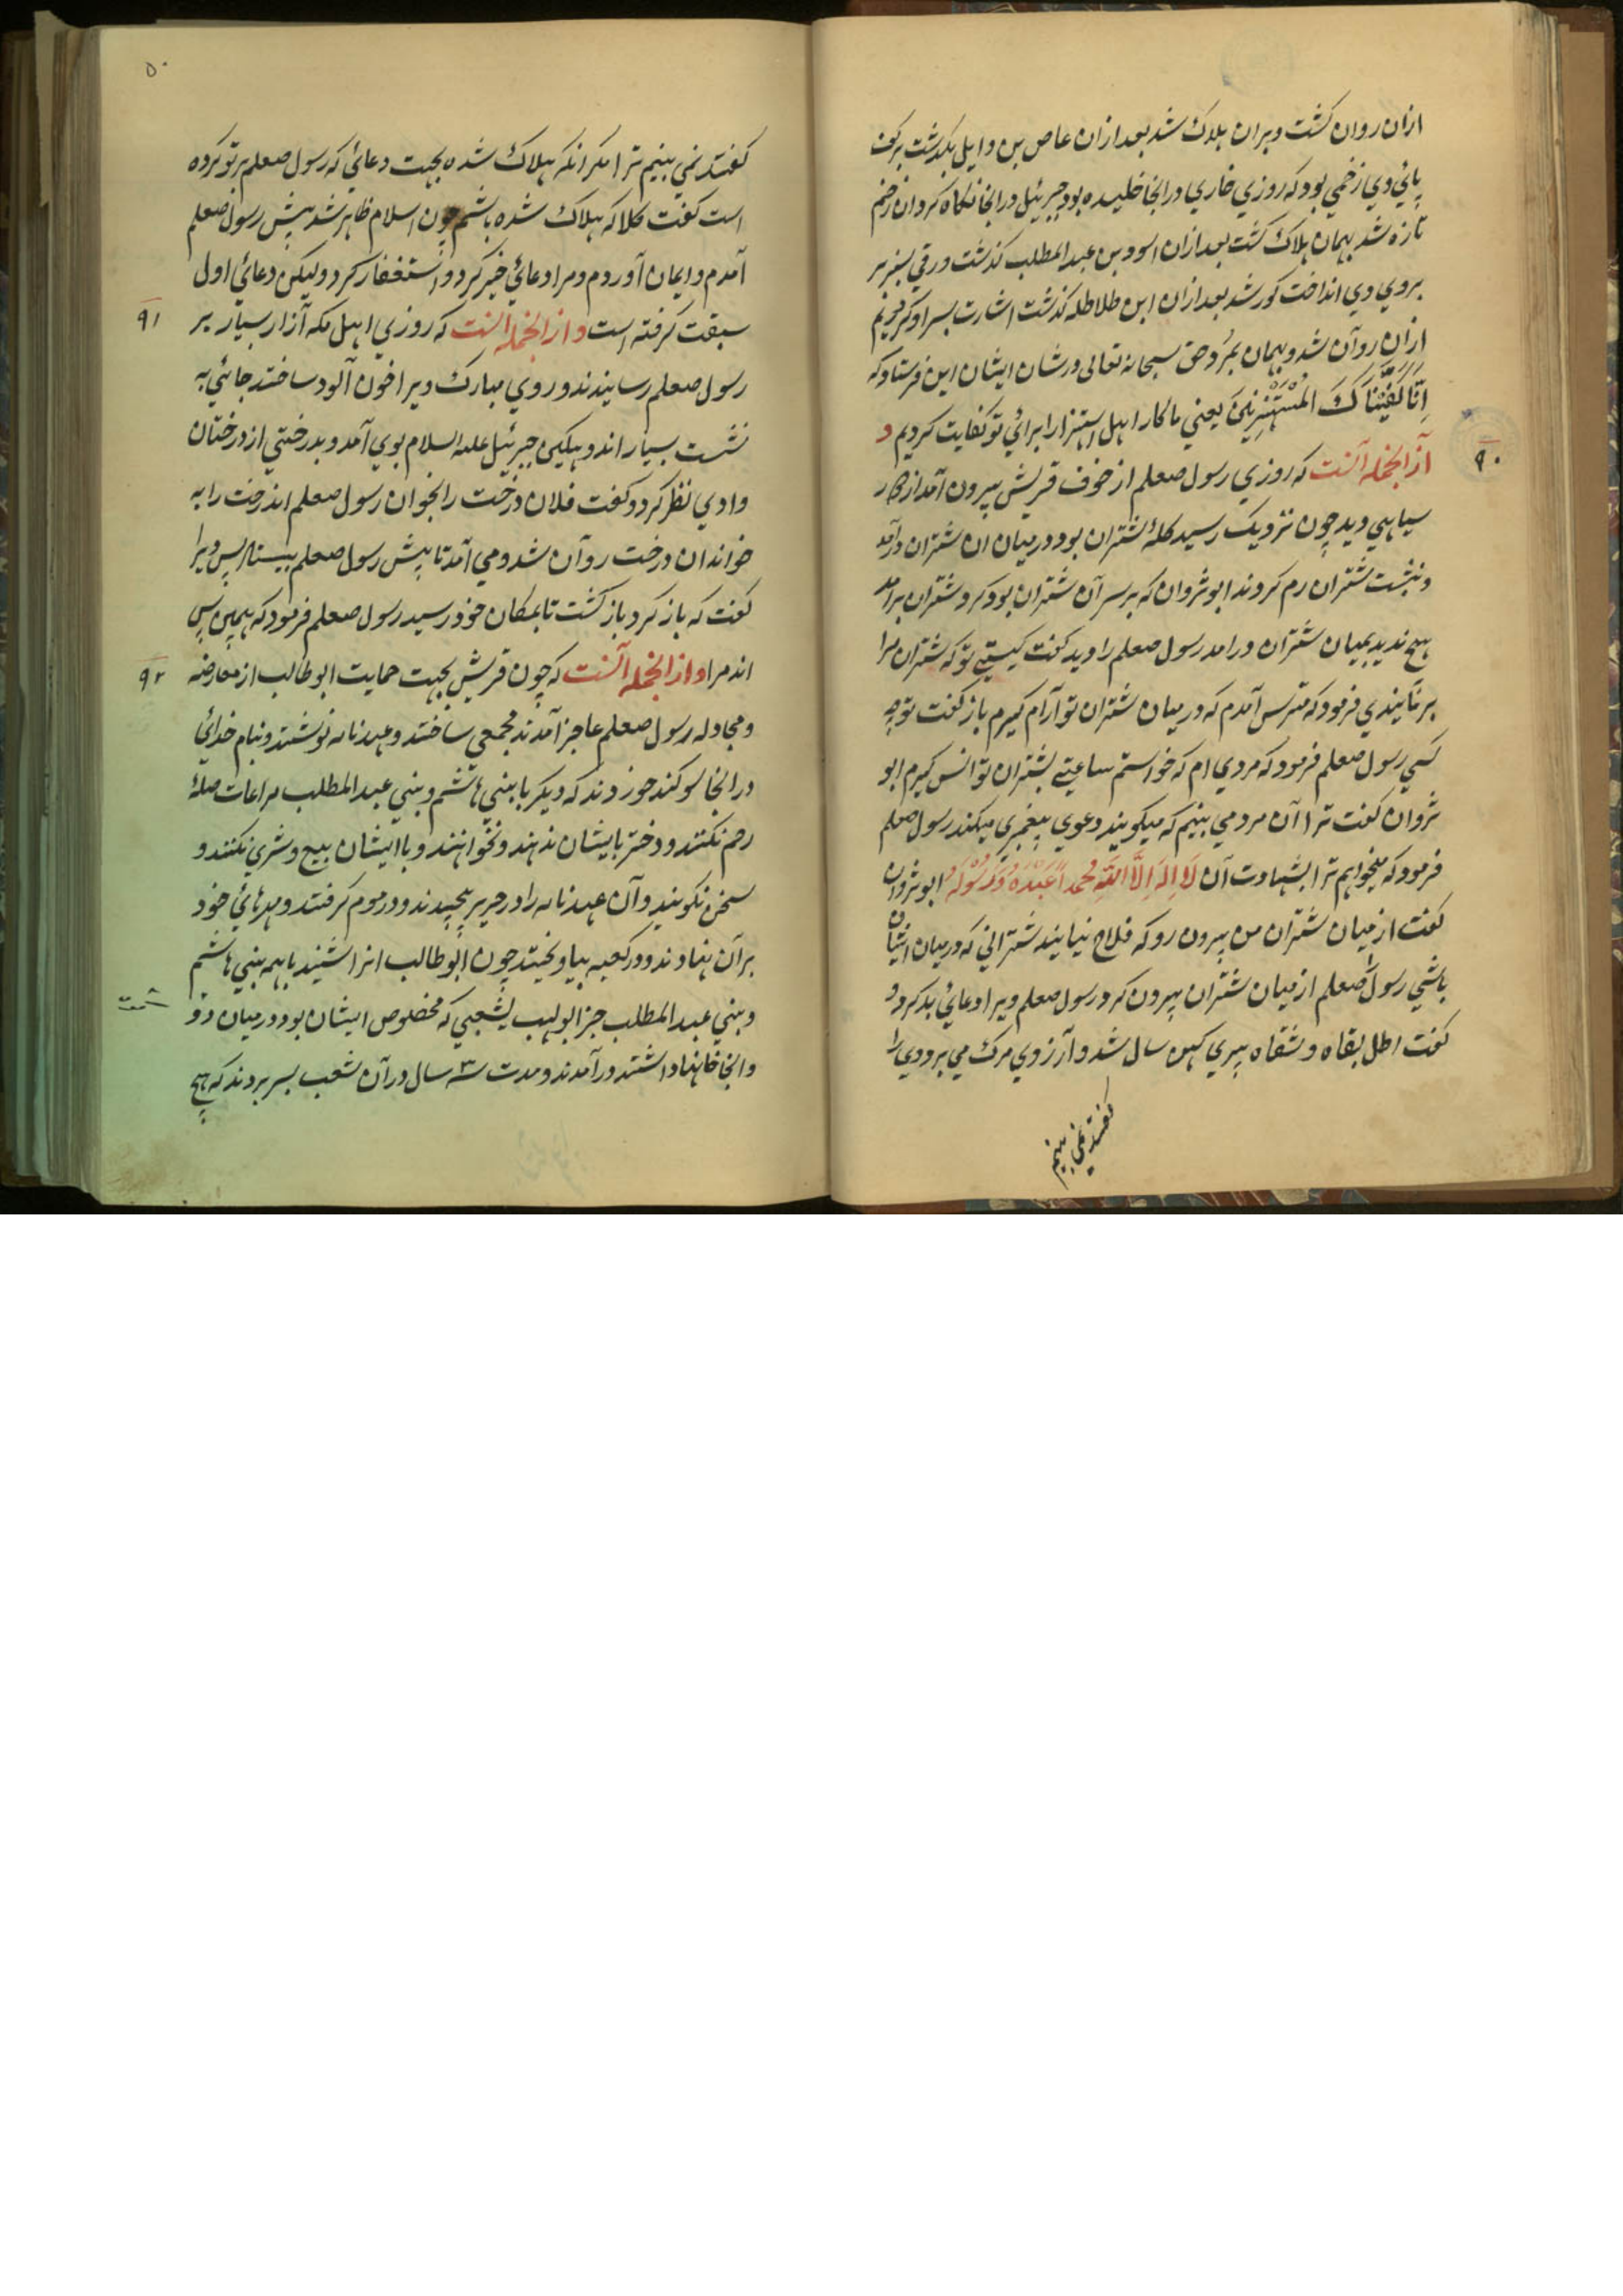 ازان روان کشت و بران هلاک شد بعد ازان عاص بن وایل بکذشت بر کف
پائی وی زخمی بود که روزی خاری در انجا خلیده بود جبرئیل در انجا نکاه کرد ان زخم
تازه شد بهمان هلاک کشت بعد ازان اسود بن عبد المطلب کذشت ورقی سبز بر
بروی وی انداخت کور شد بعد ازان ابن طلاطله کذشت اشارت بسر او کرد ریم
ازان روآن شد و بهمان بمرد و حق سبحانه تعالی در شان ایشان این فرستاد که
اِنَّا کَفَیْنَاکَ المُسْتَهْزِئینَ یعنی ما کار اهل استهزا را برائی تو کفایت کردیم و
۹۰
ازانجمله آنست که روزی رسول صعلم از خوف قریش بیرون آمد از
سیاهی دید چون نزدیک رسید کلهٔ شتران بود در میان ان شتران درآمد
و بنشت شتران رم کردند ابو ثروان که بر سر آن شتران بود کرد شتران برامد
هیچ ندید بمیان شتران درامد رسول صعلم را دید کفت کیستی تو که شتران مرا
برمانیدی فرمود که مترس آمدم که در میان شتران تو آرام کیرم باز کفت تو چه
کسی رسول صعلم فرمود که مردی ام که خواستم ساعتی بشتران تو انس کیرم ابو
ثروان کفت ترا آن مرد می بینم که میکویند دعوی پیغمبری میکند رسول صعلم
فرمود که میخواهم ترا بشهادت آن لَا اِلهَ اِلَّا اللّه محمداً عَبْدَهُ وَرَسُوْلَهُ ابو ثروان
کفت از میان شتران من بیرون رو که فلاح نیابند شترانی که در میان ایشان
باشی رسول صعلم از میان شتران بیرون کرد رسول صعلم ویرا دعائی بد کرد و
کفت اطل بقاه و شقاه پیری کهن سال شد و آرزوی مرک می برد وی را
کفتند نمی بینیم
۵۰
کفتند نمی بینیم ترا مکر انکه هلاک شده بجهت دعائی که رسول صعلم بر تو کرده
است کفت کلا که هلاک شده باشم چون اسلام ظاهر شد پیش رسول صعلم
آمدم و ایمان آوردم و مرا دعائی خیر کرد و استغفار کرد و لیکن دعائی اول
سبقت کرفته است و ازانجمله انست که روزی اهل مکه آزار بسیار بر
۹۱
رسول صعلم رسانیدند و روی مبارک ویرا خون آلود ساختند جائی به
نشست بسیار اندوهکین جبرئیل علیه السلام بوی آمد و بدرختی از درختان
وادی نظر کرد و کفت فلان درخت را بخوان رسول صعلم اندرخت را به
خواند ان درخت روآن شد و می آمد تا پیش رسول صعلم بیستاد پس ویرا
کفت که باز کرد باز کشت تا بمکان خود رسید رسول صعلم فرمود که همین بس
اند مرا و ازانجمله آنست که چون قریش بجهت حمایت ابو طالب از معارضه
۹۲
و مجادله رسول صعلم عاجز آمدند مجمعی ساختند و عهدنامه نوشتند و بنام خدائی
در انجا سوکند خوردند که دیکر با بنی هاشم و بنی عبد المطلب مراعات صلهٔ
رحم نکنند و دختر بایشان ندهند و نخواهند و با ایشان بیع و شری نکنند و
سخن نکویند و آن عهدنامه را در حریر پیچیدند و در موم کرفتند و مهرهائی خود
برآن نهادند و در کعبه بیاویختند چون ابو طالب انرا شنید با همه بنی هاشم
و بنی عبد المطلب جز ابو لهب بشعبی که مخصوص ایشان بود در میان دو
وانجا خانها داشتند درآمدند و مدت سه سال در آن شعب بسر بردند که هیچ